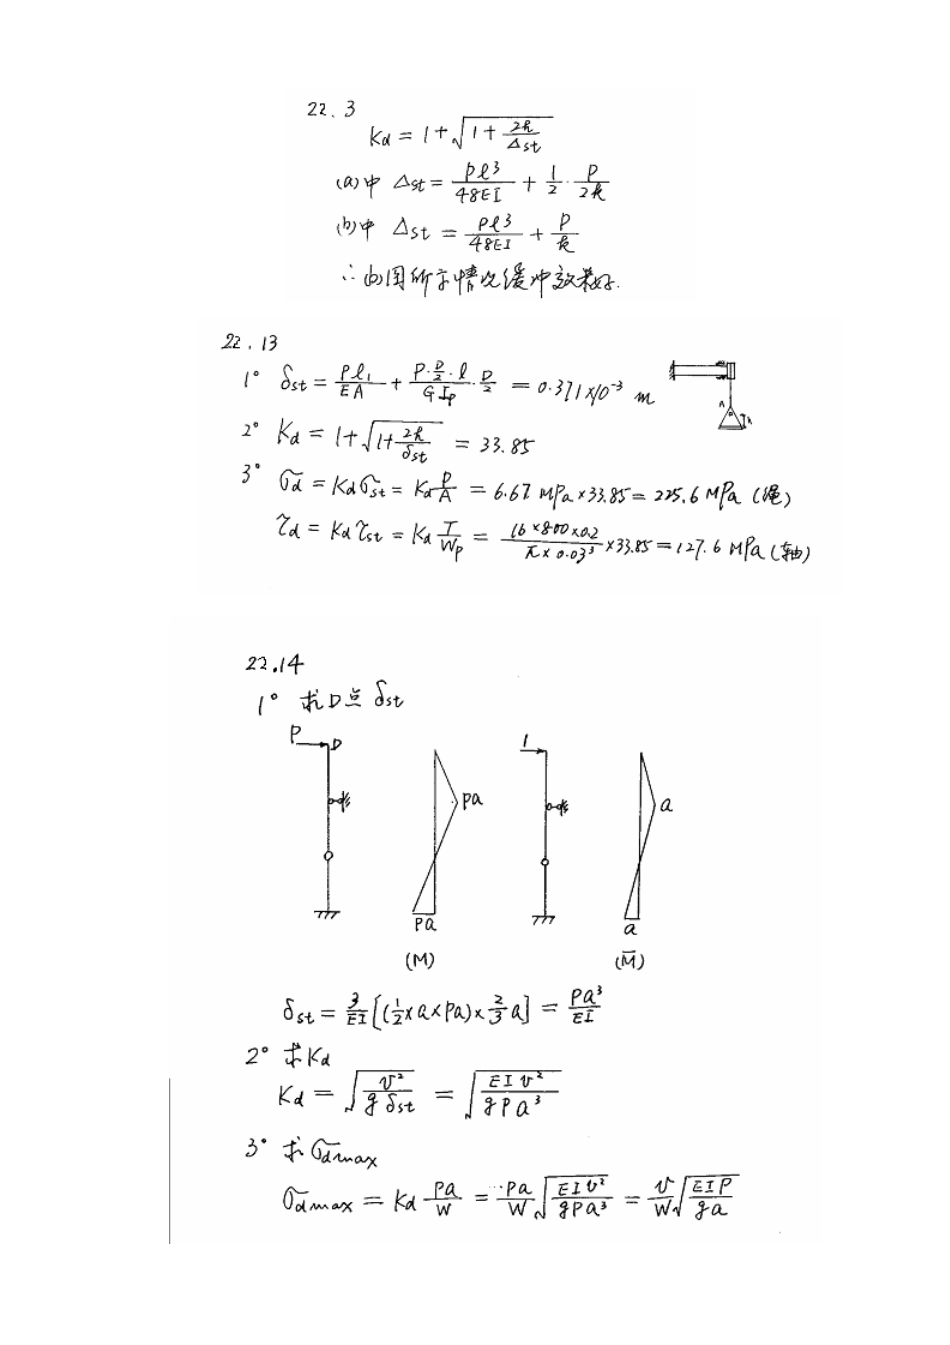 22.3
Kd = 1 + √(1 + 2h/Δst)
(a)中 Δst = Pl³/48EI + 1/2 · P/2k
(b)中 Δst = Pl³/48EI + P/k
∴ (b)图所示情况缓冲效果好.
22.13
1° δst = Pl₁/EA + (P·D/2·l)/(GIp) · D/2 = 0.371×10⁻³ m
A h
2° Kd = 1 + √(1 + 2h/δst) = 33.85
3° σd = Kdσst = Kd P/A = 6.67 MPa × 33.85 = 225.6 MPa (绳)
τd = Kdτst = Kd T/Wp = (16×800×0.2)/(π×0.03³) × 33.85 = 127.6 MPa (轴)
22.14
1° 求D点 δst
P D Pa 1 a
Pa a
(M) (M̄)
δst = 3/EI [(1/2 × a × Pa) × 2/3 a] = Pa³/EI
2° 求Kd
Kd = √(v²/gδst) = √(EIv²/gPa³)
3° 求σdmax
σdmax = Kd Pa/W = Pa/W √(EIv²/gPa³) = v/W √(EIP/ga)